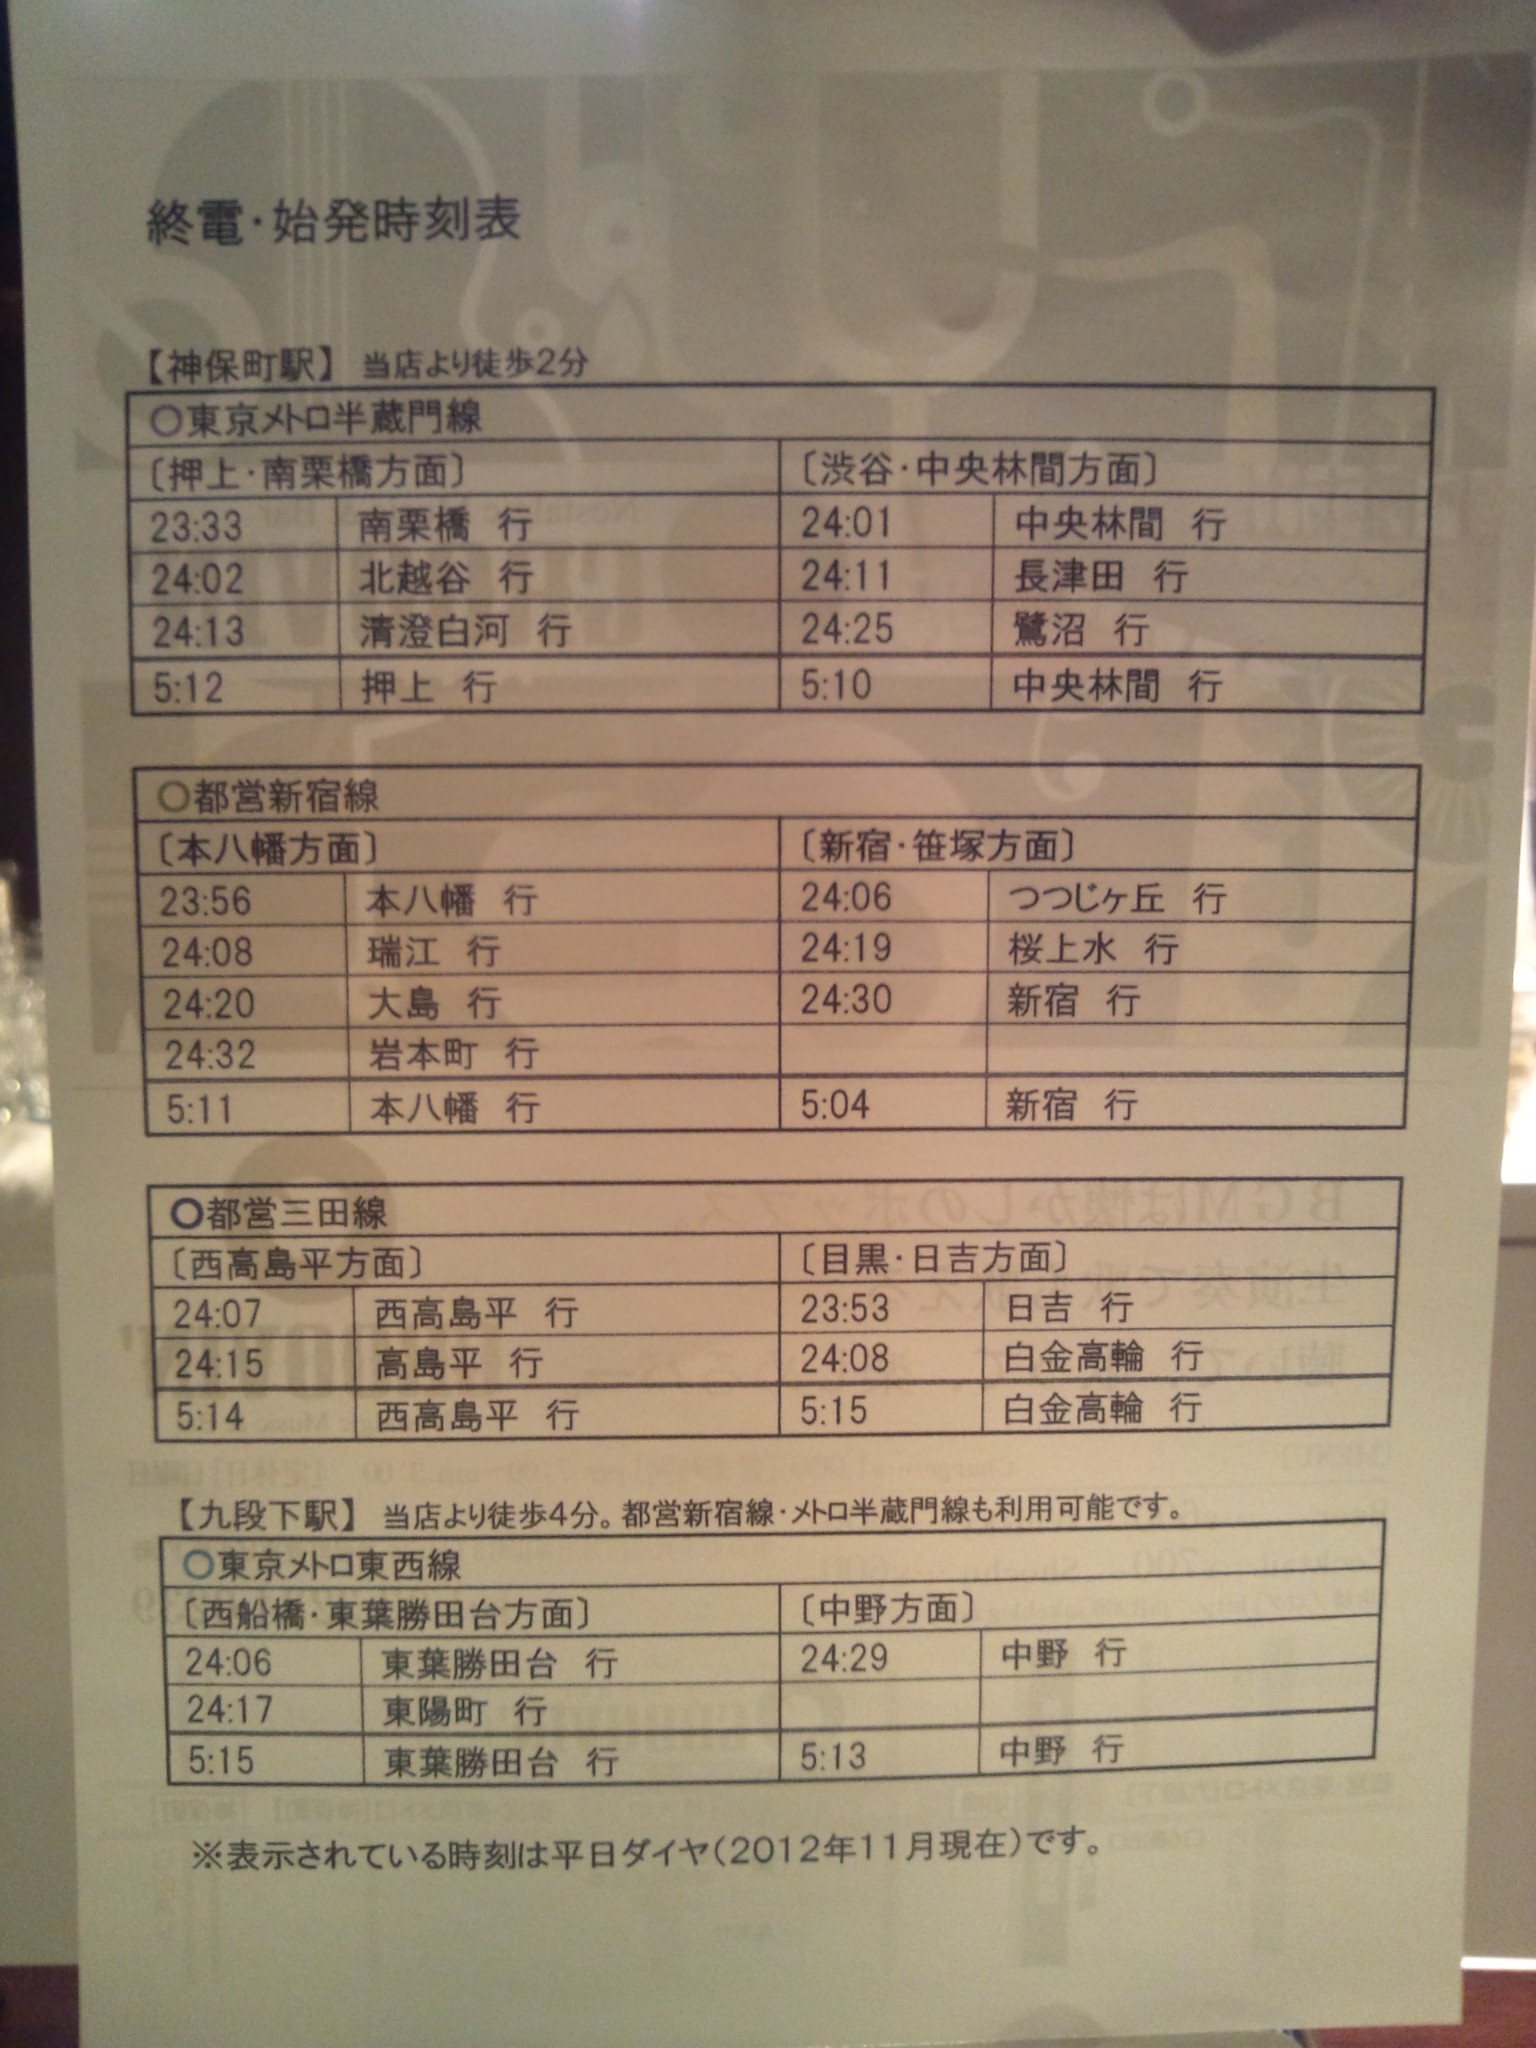 終電・始発時刻表
【神保町駅】 当店より徒歩2分
○東京メトロ半蔵門線
〔押上・南栗橋方面〕 〔渋谷・中央林間方面〕
23:33 南栗橋 行 24:01 中央林間 行
24:02 北越谷 行 24:11 長津田 行
24:13 清澄白河 行 24:25 鷺沼 行
5:12 押上 行 5:10 中央林間 行
○都営新宿線
〔本八幡方面〕 〔新宿・笹塚方面〕
23:56 本八幡 行 24:06 つつじヶ丘 行
24:08 瑞江 行 24:19 桜上水 行
24:20 大島 行 24:30 新宿 行
24:32 岩本町 行
5:11 本八幡 行 5:04 新宿 行
○都営三田線
〔西高島平方面〕 〔目黒・日吉方面〕
24:07 西高島平 行 23:53 日吉 行
24:15 高島平 行 24:08 白金高輪 行
5:14 西高島平 行 5:15 白金高輪 行
【九段下駅】 当店より徒歩4分。都営新宿線・メトロ半蔵門線も利用可能です。
○東京メトロ東西線
〔西船橋・東葉勝田台方面〕 〔中野方面〕
24:06 東葉勝田台 行 24:29 中野 行
24:17 東陽町 行
5:15 東葉勝田台 行 5:13 中野 行
※表示されている時刻は平日ダイヤ(2012年11月現在)です。